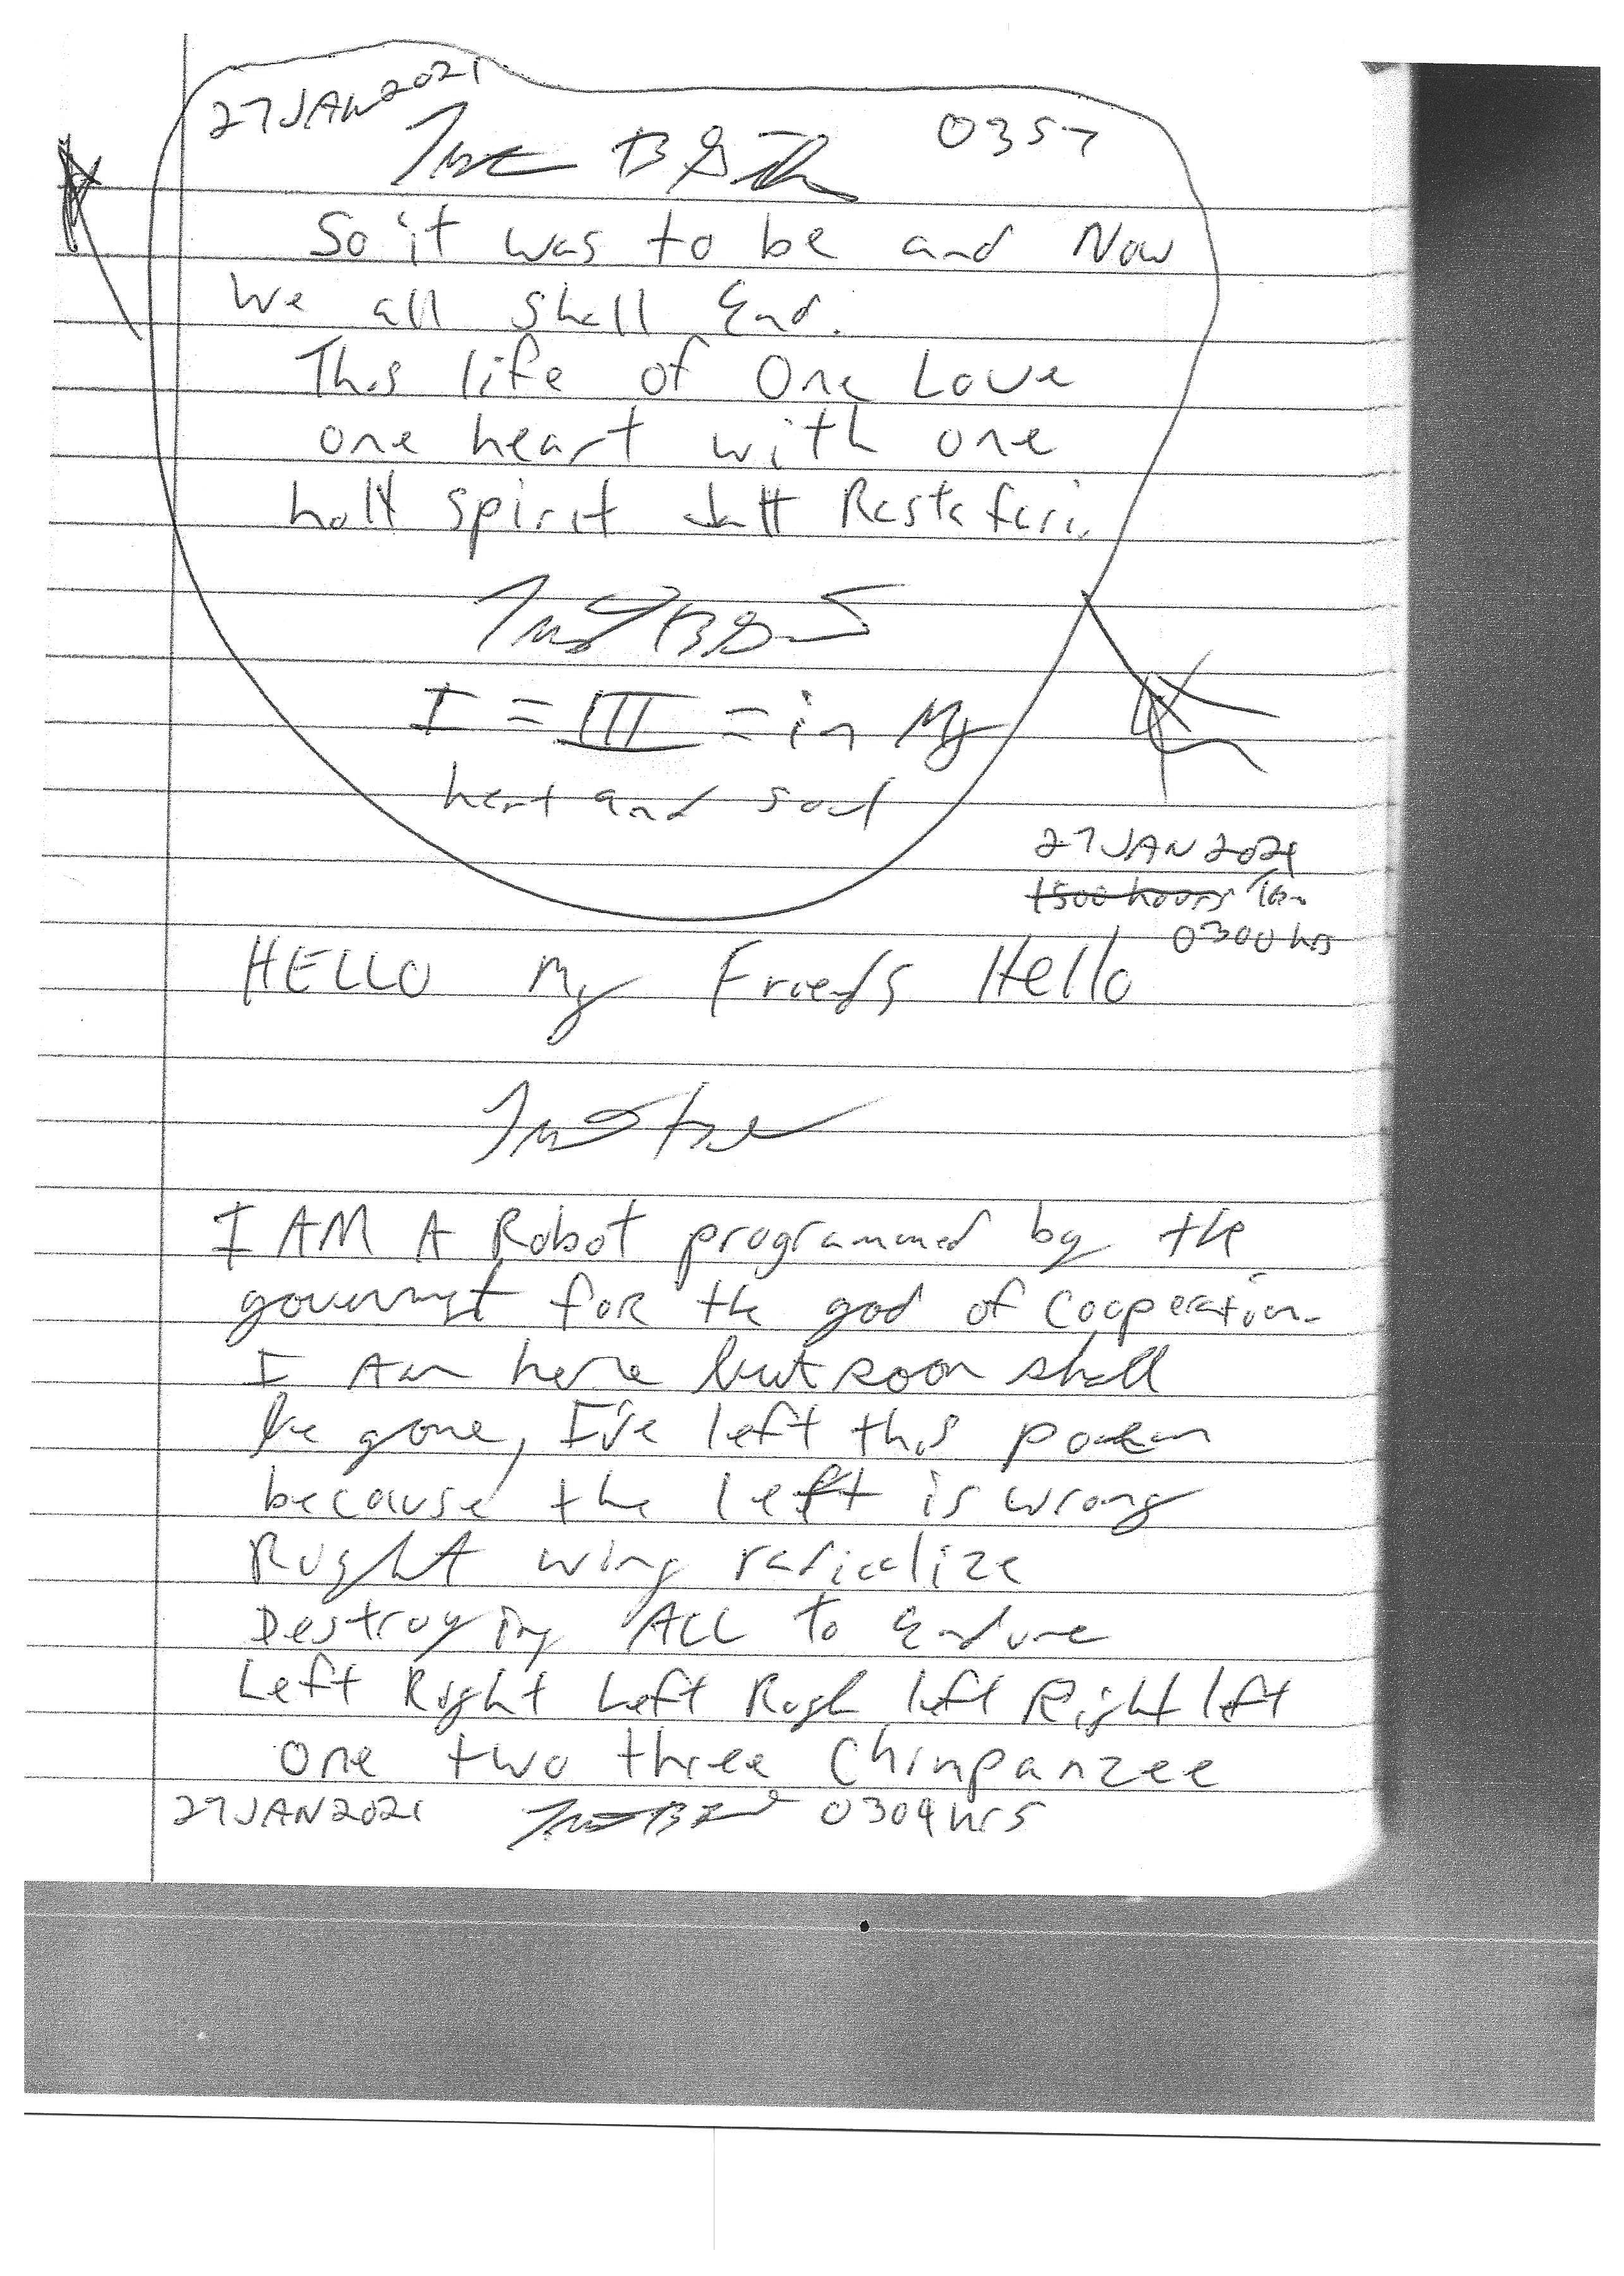 27 JAN 2021
0357
So it was to be and Now
we all shall End.
This life of One Love
one heart with one
holy spirit JAH Rastafari.
I = III = in My
heart and soul
27 JAN 2021
1500 hours
0300 hrs
HELLO My Friends Hello
I AM A Robot programmed by the
government for the god of Cooperation.
I Am here but soon shall
be gone, I've left this poem
because the left is wrong
Right wing radicalize
Destroying ALL to Endure
Left Right Left Righ left Right left
One two three Chimpanzee
27 JAN 2021 0304 hrs